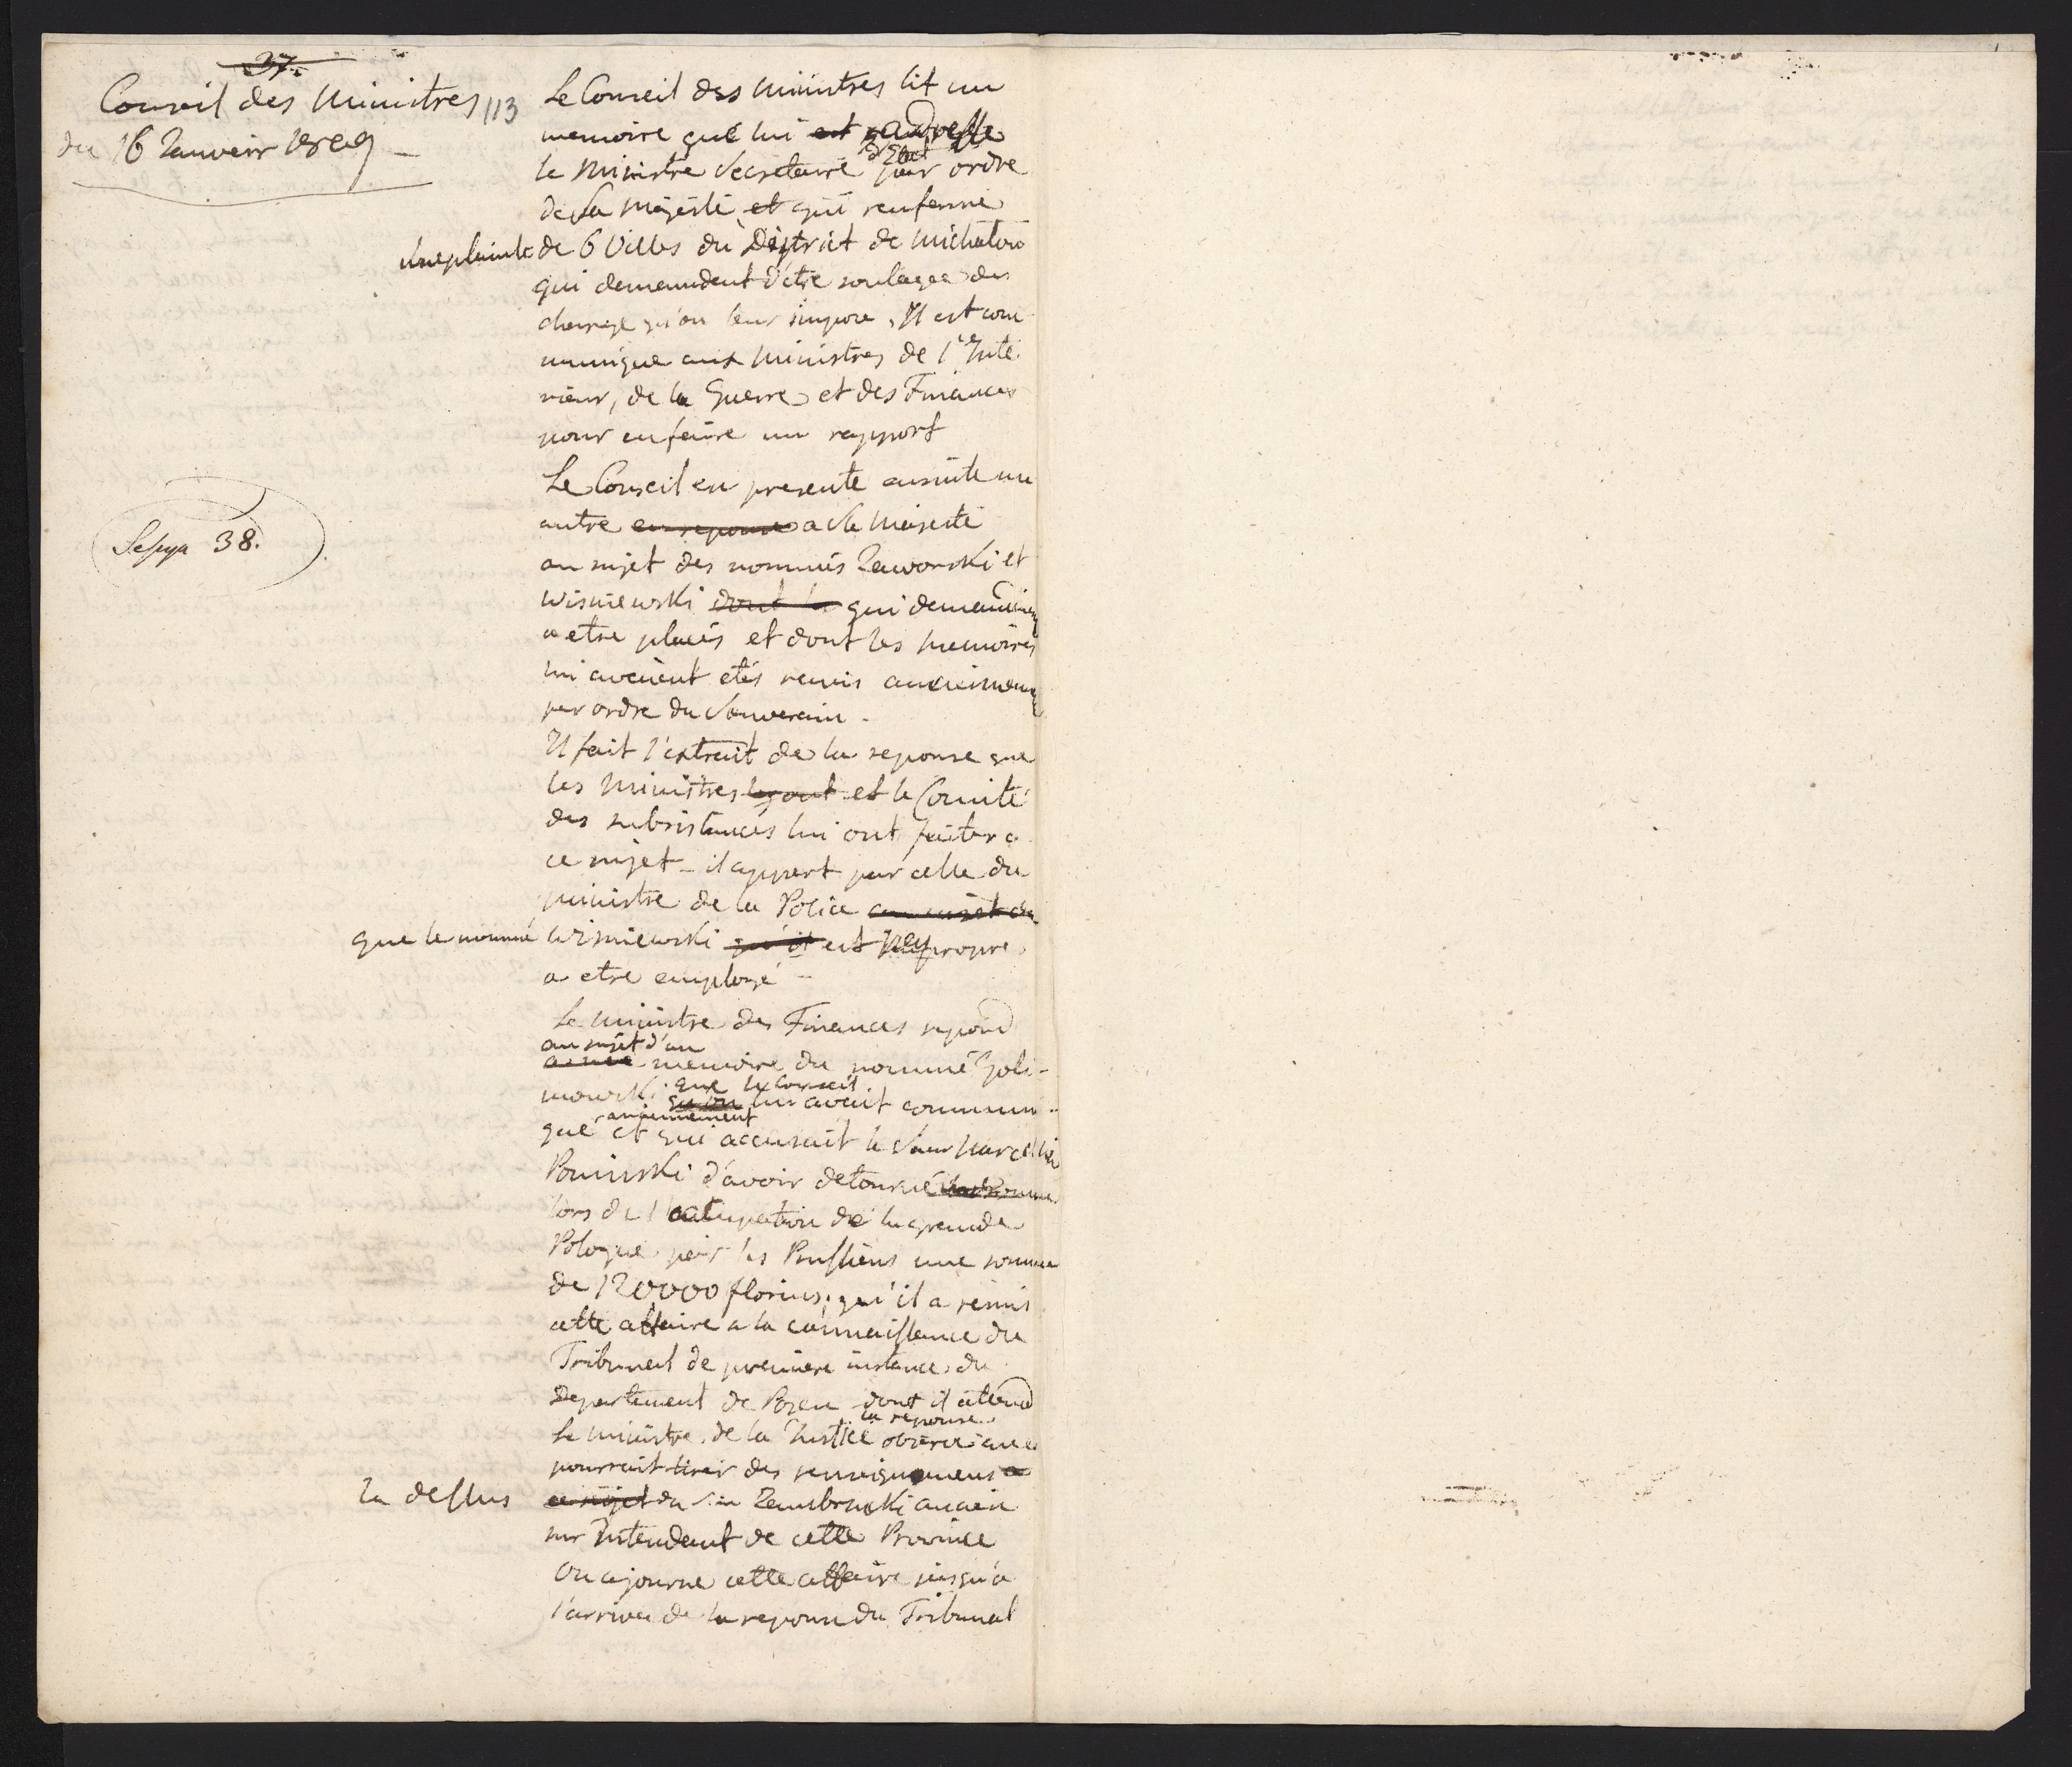 37.
Conseil des Ministres 113
du 16 Janvier 1809
Le Conseil des Ministres lit un
memoire que lui est adresse
le Ministre Secretaire d'Etat par ordre
de Sa Majesté et qui renferme
une plainte de 6 Villes du District de Michalow
qui demandent d'etre soulagés des
charge qu'on leur impose. Il est com-
muniqué aux Ministres de l'Inte-
rieur, de la Guerre et des Finances
pour en faire un rapport
Le Conseil en presente ensuite un
autre en reponse a Sa Majesté
Sessya 38.
au sujet des nommés Zaworski et
Wisniewski dont la qui demandaient
a etre placés et dont les memoires
lui avaient étés remis anciennement
par ordre du Souverain.
Il fait l'extrait de la reponse que
les Ministres lesont et le Comité
des subsistances lui ont faites a
ce sujet - il appert par celle du
Ministre de la Police au sujet du
que le nommé Wisniewski qu'il est peu propre
a etre employé -
Le Ministre des Finances repond
au sujet d'un
a une memoire du nommé Goli-
que le Conseil
mowski qu'on lui avait communi-
anciennement
qué et qui accusait le Sieur Marcellin
Poninski d'avoir detourné une somme
lors de l'occupation de la grande
Pologne par les Prussiens une somme
de 120000 florins; qu'il a remis
cette affaire a la connaissance du
Tribunal de premiere instance du
Departement de Posen dont il attend
la reponse.
Le Ministre de la Justice observe que
pourrait tirer des renseignemens a
la dessus ce sujet du Sieur Zembrzuski ancien
sur Intendant de cette Province
On ajourne cette affaire jusqu'a
l'arrivee de la reponse du Tribunal